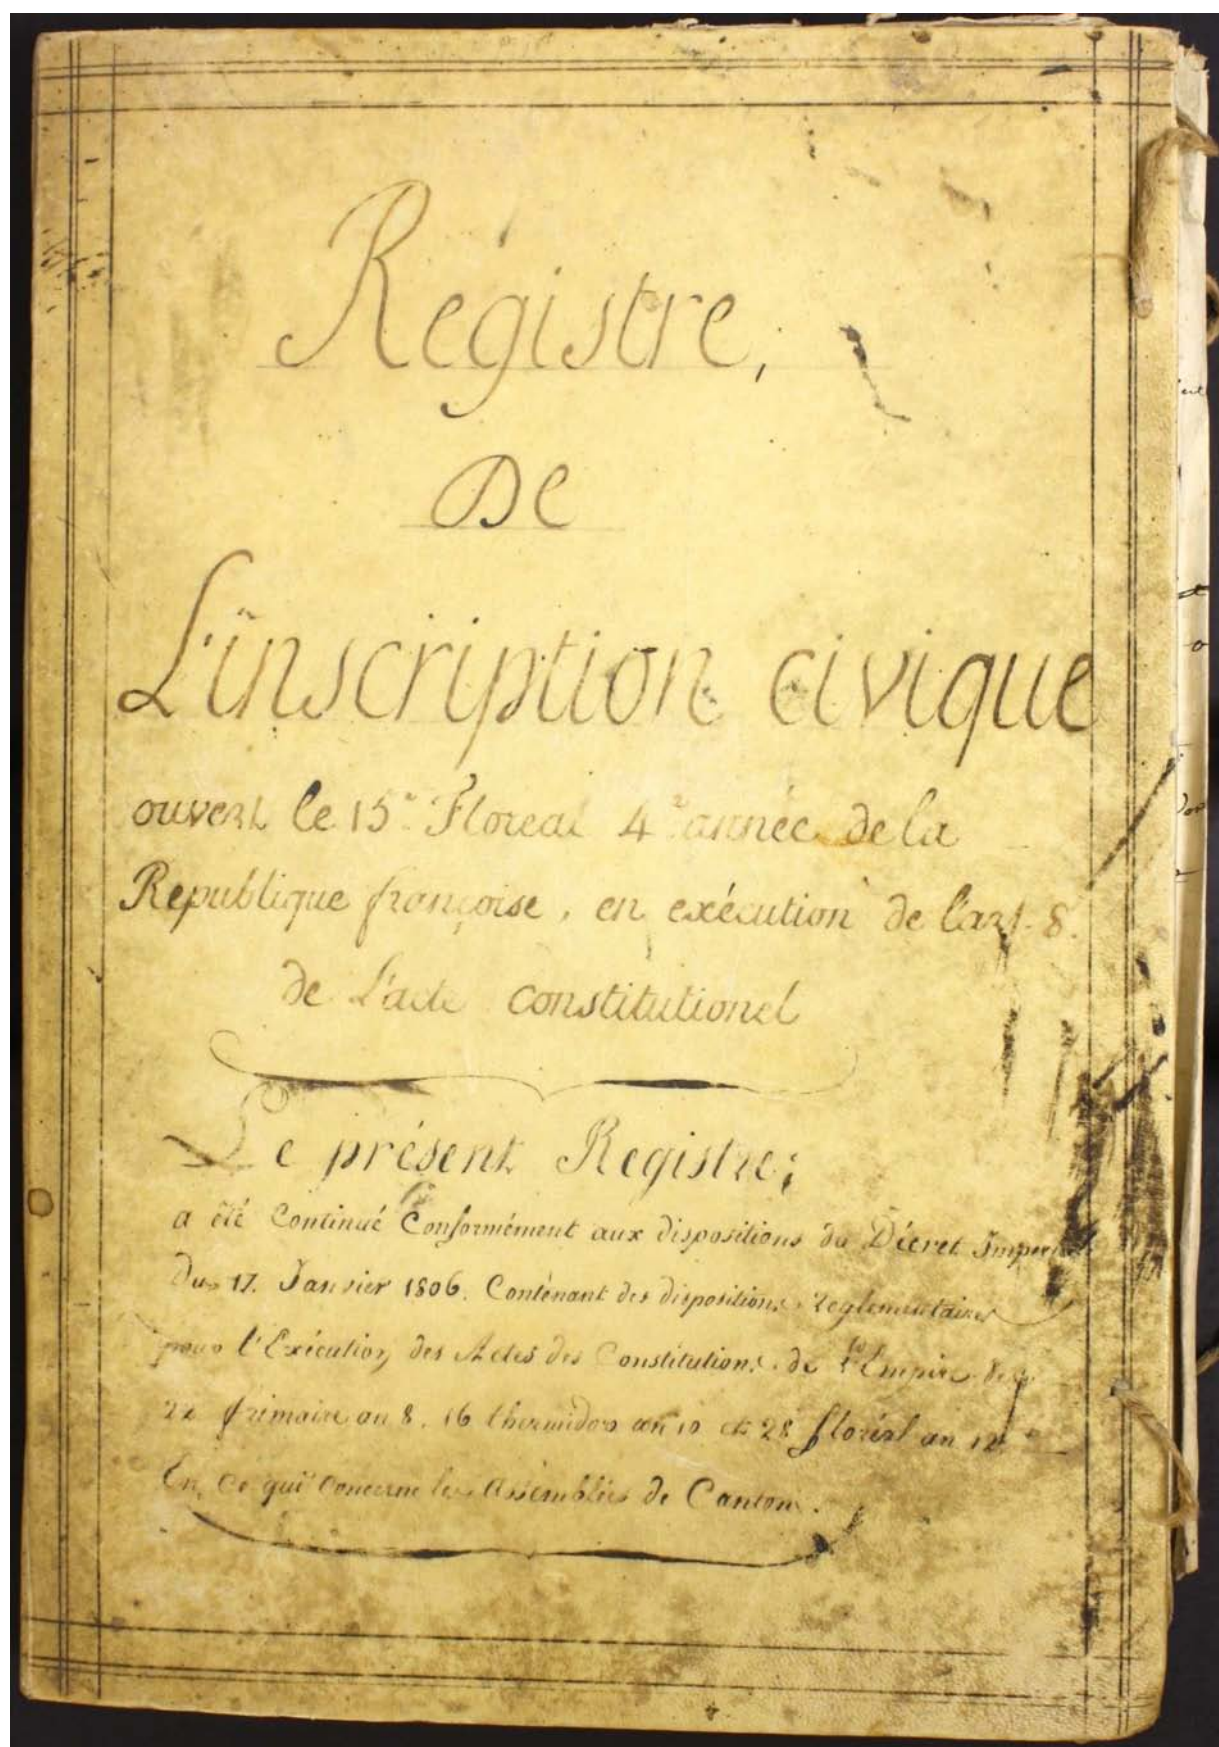 Registre,
De
L'inscription civique
ouvert le 15.e Floreal 4.e année de la
Republique françoise, en exécution de l'art. 8.
de l'acte constitutionel
Le présent Registre;
a été Continué Conformément aux dispositions du Décret
Du 17. Janvier 1806. Contenant des dispositions reglementaires
pour l'Exécution des Actes des Constitutions de l'Empire des
22 frimaire an 8. 16 thermidor an 10 et 28 floréal an 12
En ce qui concerne les Assemblées de Canton.